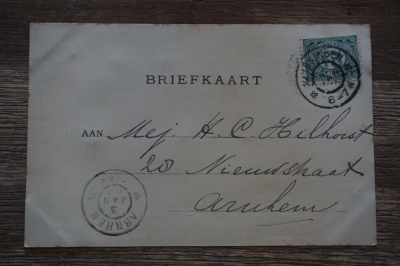 BRIEFKAART
AAN Mej. H. C. Hilhorst
28 Nieuwstraat
Arnhem
ARNHEM
5
JAN
6-7N